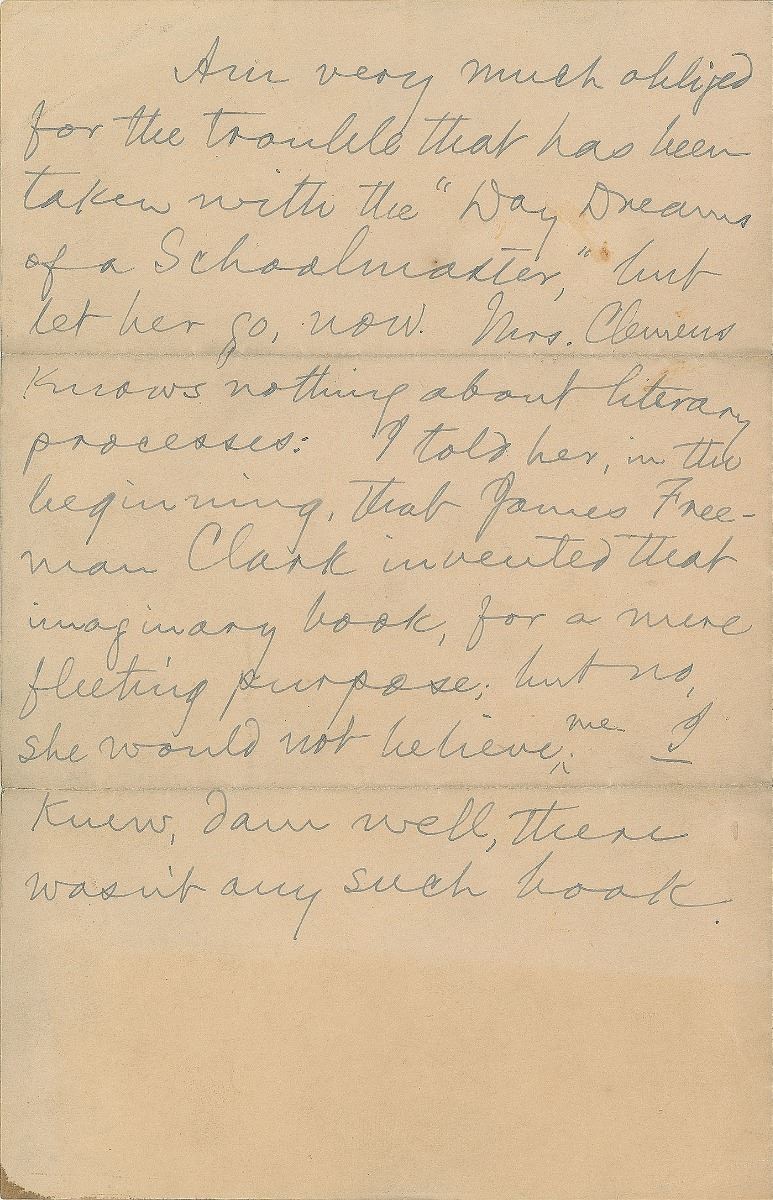 Am very much obliged
for the trouble that has been
taken with the "Day Dreams
of a Schoolmaster," but
let her go, now. Mrs. Clemens
knows nothing about literary
processes: I told her, in the
beginning, that James Free-
man Clark invented that
imaginary book, for a mere
fleeting purpose; but no,
she would not believe me; I
knew, dam well, there
wasn't any such book.